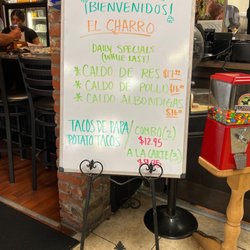 ¡BIENVENIDOS!
EL CHARRO
DAILY SPECIALS
(WHILE LAST)
*CALDO DE RES $17.00
*CALDO DE POLLO $16.00
*CALDO ALBONDIGAS
$16.00
TACOS DE PAPA/
POTATO TACOS
COMBO(2)
$12.95
A LA CARTE(3)